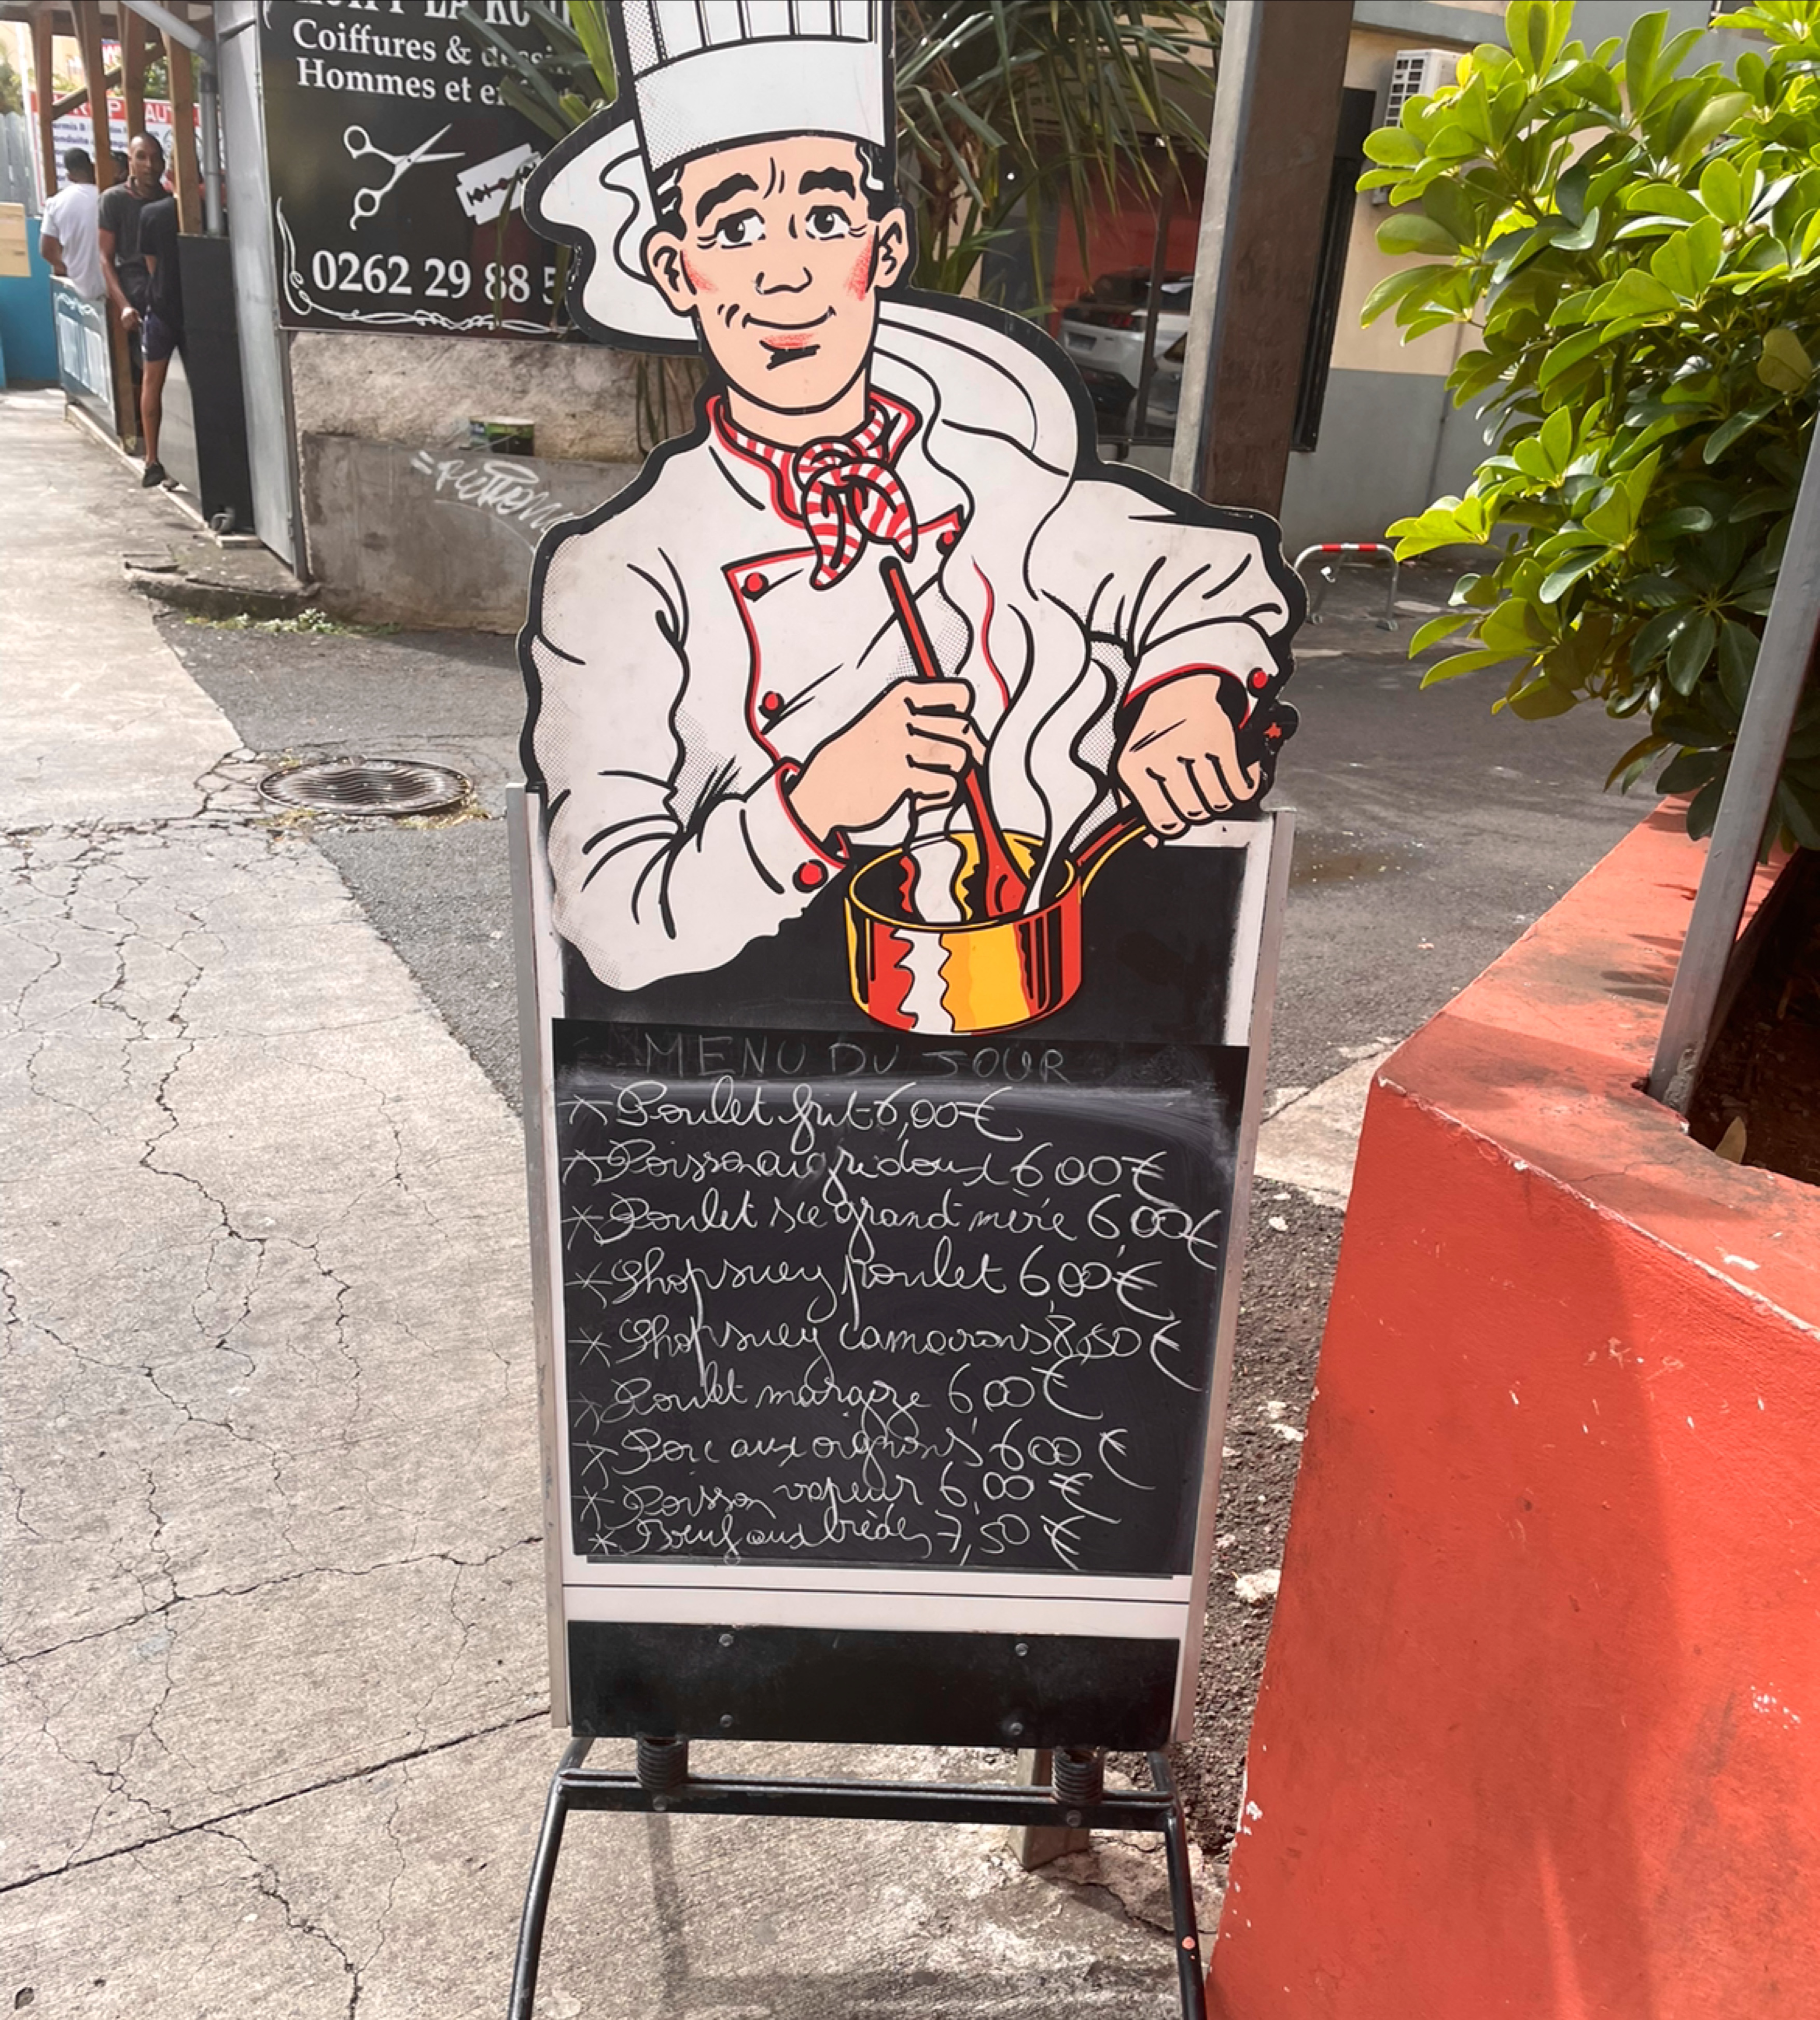 Coiffures &
Hommes et
0262 29 88 5
MENU DU JOUR
* Poulet frit 6,00€
* Poisson aigridoux 6,00€
* Poulet sce grand mère 6,00€
* Shopsuey poulet 6,00€
* Shopsuey camarons 8,50€
* Poulet 6,00€
* Porc aux oignons 6,00€
* Poisson vapeur 6,00€
* Boeuf aux brèdes 7,50€